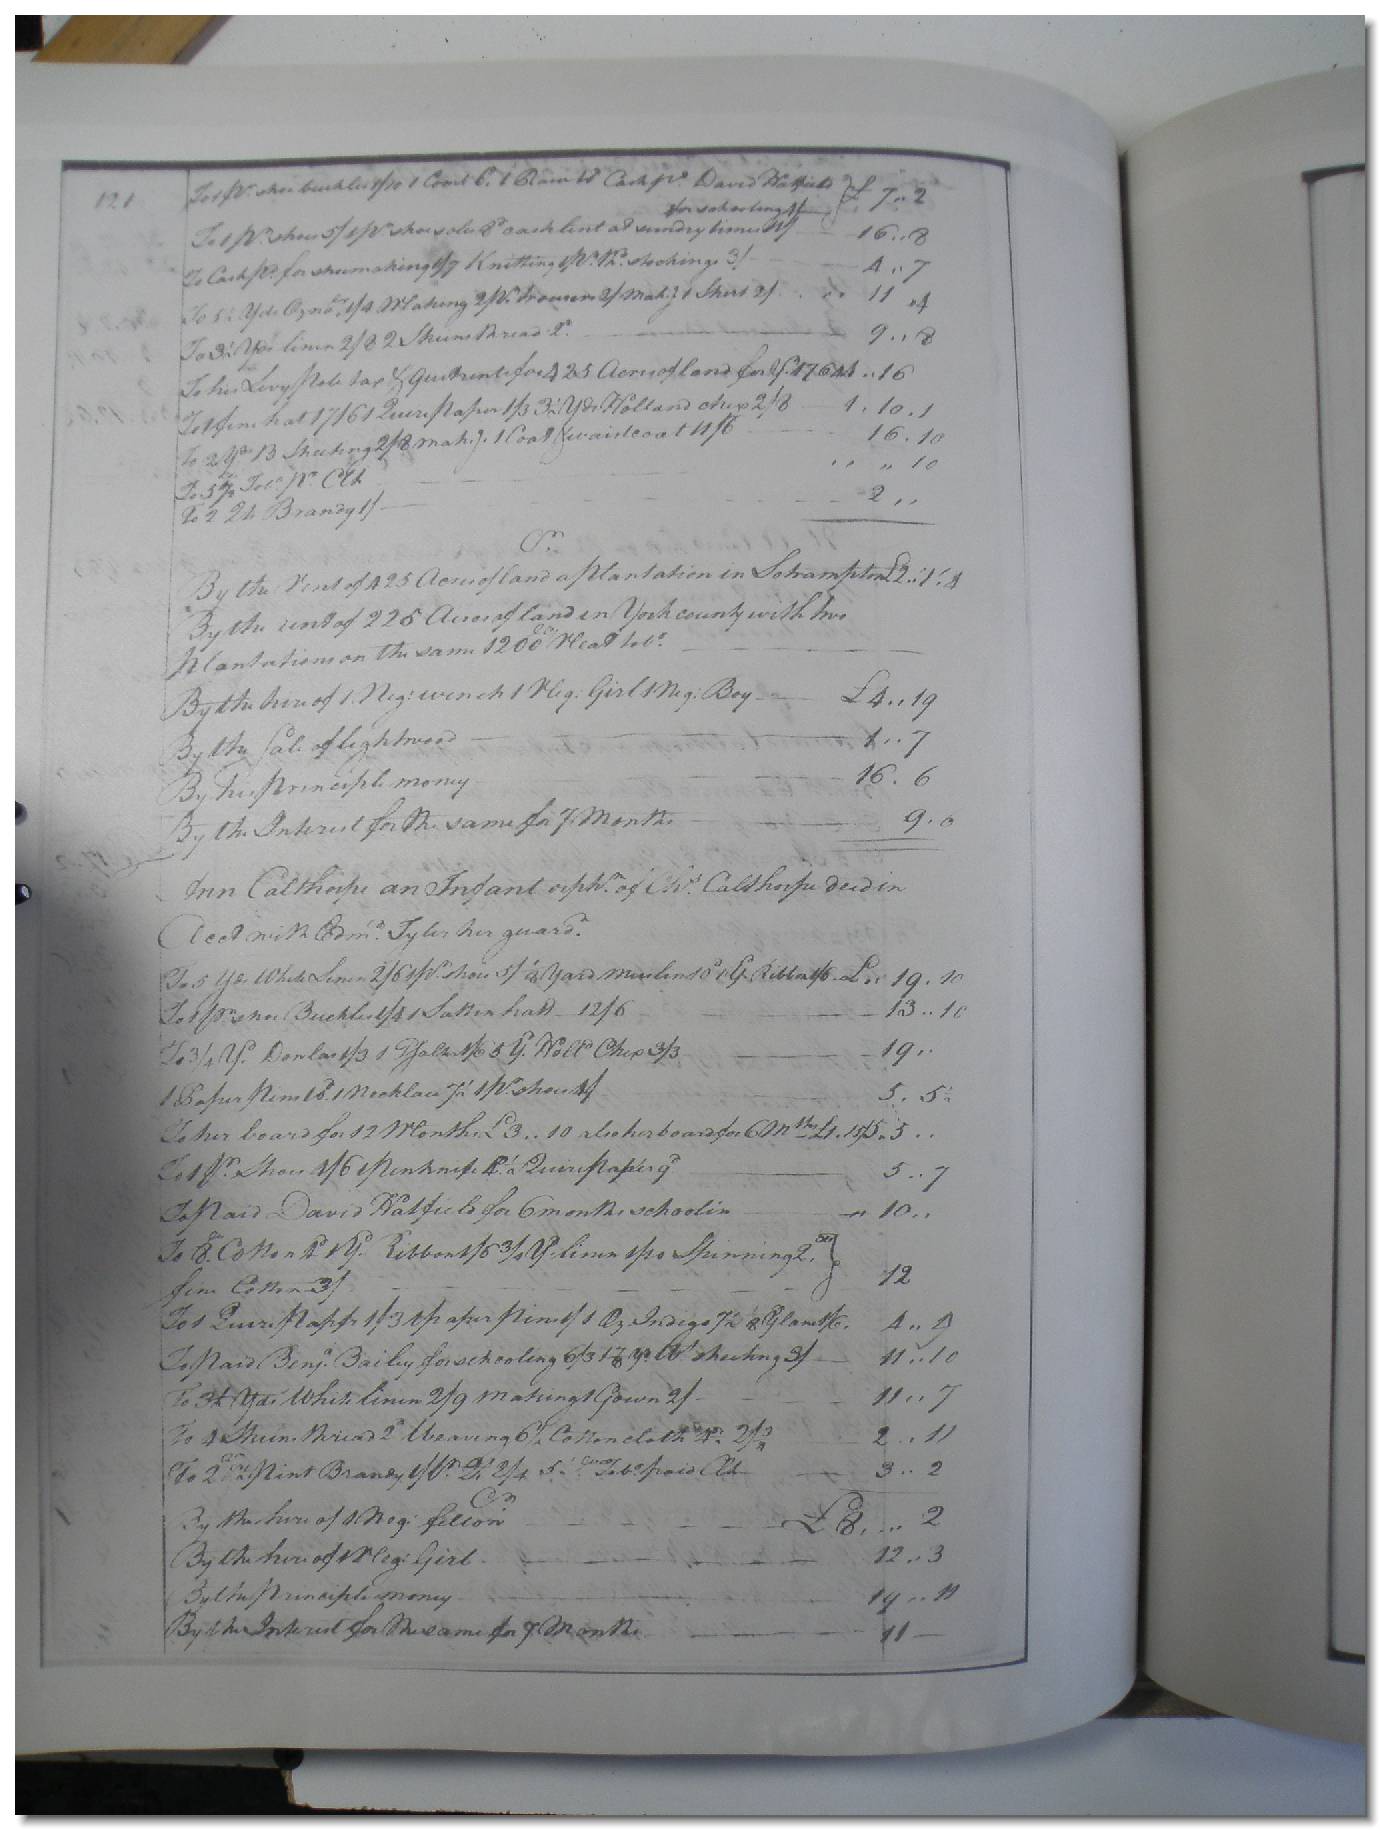 121
To 1 pr. shoe buckles 1/10 1 Comb 6d. 1 Cash pd. David Hatfield £ 7..2
for schooling
To 1 pr. shoes 5/ 1 pr. shoe soles 8d cash lent at sundry times 11/ 16..8
To Cash pd. for shoemaking 1/7 Knitting 1 pr. stockings 3/ 4..7
To 5 Yds Ozn. 1/4 Making 2 pr. trousers 2/ mak:g 1 Shirt 2/ 11 ..4
To 3½ Yds linen 2/8 2 Skeins thread 2d. 9..8
To his Levy Pole tax & Quitrents for 425 Acres of land for Yr. 1764 1..16
To 1 fine hat 17/6 1 Quire Paper 1/3 3½ Yds Holland chex 2/8 1.10.1
To 2 Yds B Sheeting 2/8 mak:g. 1 Coat & waistcoat 11/6 16.10
To 5 Tobo. pr. Clk .. .. 10
To 2 Qts Brandy 1/ 2 ..
Cr.
By the Rent of 425 Acres of land a Plantation in Sohampton £2..1..4
By the rent of 225 Acres of land in York county with two
Plantations on the same 1200 Neat tobo.
By the hire of 1. Neg: wench 1 Neg: Girl 1 Neg: Boy £4..19
By the Sale of lightwood 1..7
By his Principle money 16.6
By the Interest for the same for 7 Months 9.0
Ann Calthorpe an Infant orphn. of Chs. Calthorpe deced in
Acct with Edmd. Tyler her guardn.
To 5 Yds White Linen 2/6 1 pr. shoes 5/ ⅛ Yard muslin 10d 1 Yd. Ribbon 1/6 £.. 19.10
To 1 pr. shoe Buckles 1/4 1 Satten hatt 12/6 13..10
To 3/4 Yd. Dowlas 1/3 1 1/6 5 Yd. Holld Chex 3/3 19..
1 Paper Pins 1 Necklace 7½ 1 pr. shoes 4/ 5. 5½
To her board for 12 Months £3..10 also her board for 6 Mths £1.15/ 5.5..
To 1 pr. Shoes 4/6 1 Penknife 4d. ½ Quire Paper 9d 5..7
To Paid David Hatfield for 6 months schoolin 10..
To 8 Cotton 1 Yd. Ribbon 1/6 3/4 Yd. linen 1/10 Spinning 2
fine Cotton 3/ 12
To 1 Quire Papr 1/3 1 paper Pins 1/ 1 Oz Indigo 7½ 4..
To Paid Benj. Bailey for schooling 6/3 1⅞ Yd. Wt sheeting 3/ 11..10
To 3½ Yds White linen 2/9 making 1 Gown 2/ 11..7
To 4 Skeins thread 2d Weaving 6 Yds Cotton cloth 2..11
To 2 Pint Brandy 2/4 5 Tobo. paid Clk 3..2
Cr.
By the hire of 1 Neg: fellow £8. .. 2
By the hire of 1 Neg: Girl. 12..3
By the Principle money 19..11
By the Interest for the same for 7 Months 11